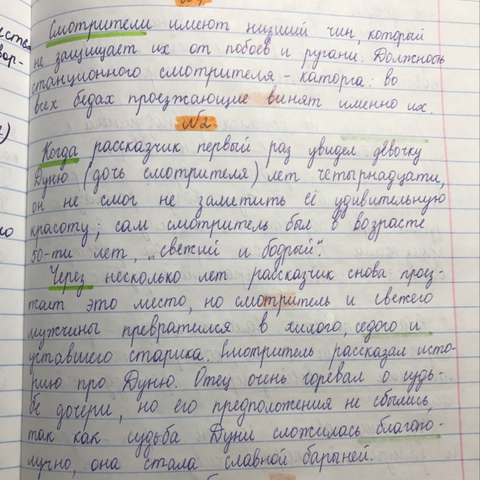 Смотрители имеют низший чин, который
не защищает их от побоев и ругани. Должность
станционного смотрителя - каторга: во
всех бедах проезжающие винят именно их.
№2
Когда рассказчик первый раз увидел девочку
Дуню (дочь смотрителя) лет четырнадцати,
он не смог не заметить её удивительную
красоту; сам смотритель был в возрасте
50-ти лет, „свежий и бодрый".
Через несколько лет рассказчик снова проез-
жает это место, но смотритель и свежего
мужчины превратился в хилого, седого и
уставшего старика. Смотритель рассказал исто-
рию про Дуню. Отец очень горевал о судь-
бе дочери, но его предположения не сбылись
так как судьба Дуни сложилась благопо-
лучно, она стала славной барыней.